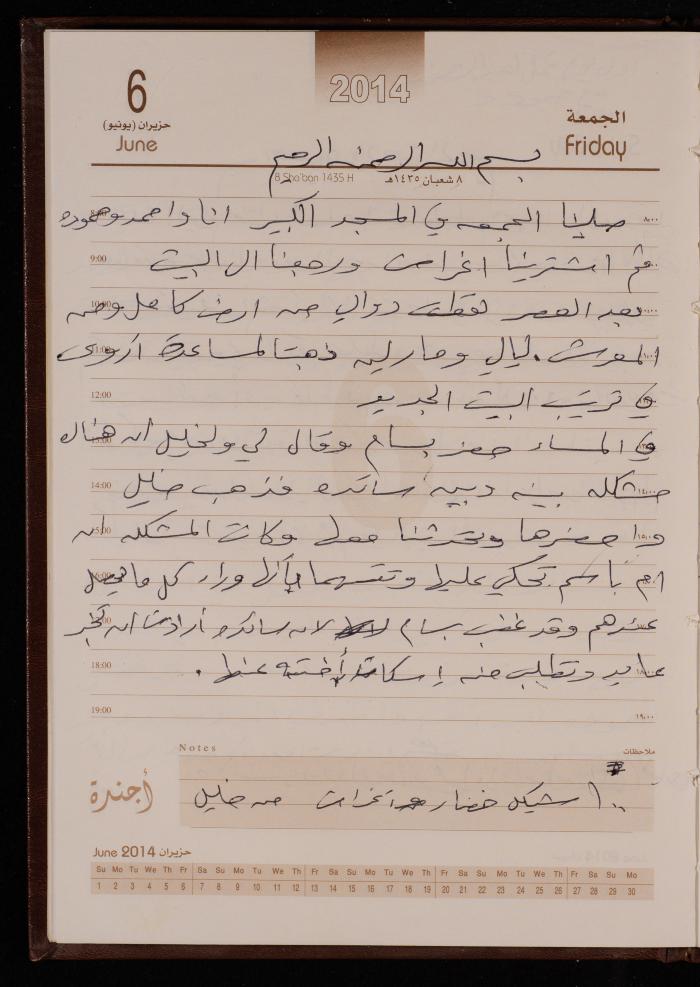 6
2014
حزيران (يونيو)
June
الجمعة
Friday
بسم الله الرحمن الرحيم
8 Sha'ban 1435 H
٨ شعبان ١٤٣٥هـ
صلينا الجمعه في المسجد الكبير انا واحمد وحموده
٨:٠٠
ثم اشترينا اغراض ورجعنا الى البيت
9:00
بعد العصر لقطت دوالي من ارض كامل ومن
10:00
المعرش . ليالي ومارلين ذهبتا لمساعدة أروى
11:00
في ترتيب البيت الجديد
12:00
في المساء حضر بسام وقال لي ولخليل ان هناك
مشكله بينه وبين سائده فذهب خليل
14:00
واحضرها وتحدثنا معها وكانت المشكله ان
15:00
ام باسم تحكي عليها وتتهمها بأنها وراء كل ما يحصل
16:00
عندهم وقد غضب بسام لان سائده أرادت ان تخبر
عايد وتطلب منه إسكات أخته عنها .
18:00
19:00
١٩:٠٠
Notes
ملاحظات
أجندة
١٠٠ شيكل خضار واغراض من خليل
June 2014 حزيران
Su Mo Tu We Th Fr Sa Su Mo Tu We Th Fr Sa Su Mo Tu We Th Fr Sa Su Mo Tu We Th Fr Sa Su Mo
1 2 3 4 5 6 7 8 9 10 11 12 13 14 15 16 17 18 19 20 21 22 23 24 25 26 27 28 29 30